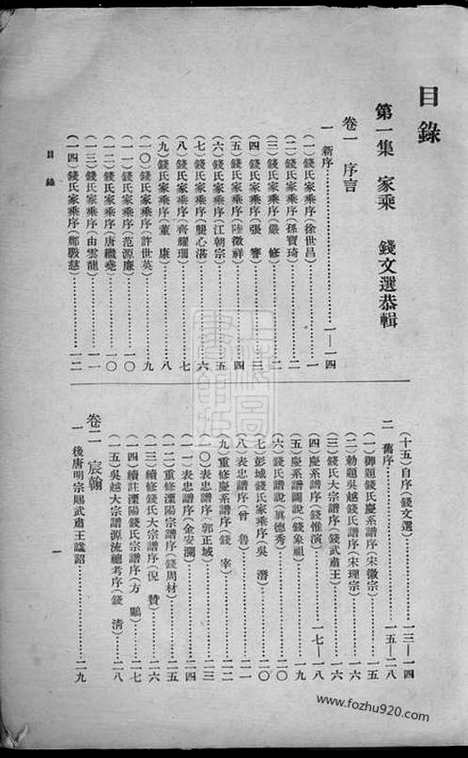 目錄
第一集 家乘 錢文選恭輯
卷一 序言
一 新序……一—一四
(一)錢氏家乘序(徐世昌)……一
(二)錢氏家乘序(孫寶琦)……二
(三)錢氏家乘序(嚴 修)……二
(四)錢氏家乘序(張 謇)……三
(五)錢氏家乘序(陸徵祥)……四
(六)錢氏家乘序(江朝宗)……五
(七)錢氏家乘序(龔心湛)……六
(八)錢氏家乘序(齊耀珊)……七
(九)錢氏家乘序(董 康)……八
(一〇)錢氏家乘序(許世英)……九
(一一)錢氏家乘序(范源廉)……一〇
(一二)錢氏家乘序(唐繼堯)……一〇
(一三)錢氏家乘序(由雲龍)……一一
(一四)錢氏家乘序(鄭毅慈)……一二
目錄
(十五)自序(錢文選)……一三—一四
二 舊序……一五—二八
(一)御題錢氏慶系譜序(宋徽宗)……一五
(二)勅題吳越錢氏譜序(宋理宗)……一六
(三)錢氏大宗譜序(錢武肅王)……一六
(四)慶系譜序(錢惟演)……一七—一八
(五)慶系譜圖說(錢象祖)……一九
(六)錢氏譜說(眞德秀)……二〇
(七)彭城錢氏家乘序(吳 潛)……二〇
(八)表忠譜序(曾 魯)……二一
(九)重修慶系譜序(錢 宰)……二二
(一〇)表忠譜序(郭正域)……二二
(一一)表忠譜序(金安瀾)……二四
(一二)重修溧陽宗譜序(錢周材)……二五
(一三)續修錢氏大宗譜序(倪 贊)……二六
(一四)續註溧陽錢氏宗譜序(方 鵬)……二六
(一五)吳越大宗譜源流總考序(錢 淸)……二八
卷二 宸翰
一 後唐明宗賜武肅王諡詔……二九
一
www.fozhu920.com